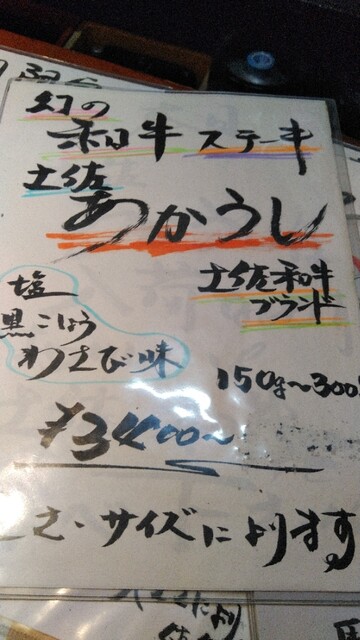 幻の
和牛ステーキ
土佐
あかうし
土佐和牛
ブランド
塩
黒こしょう
わさび味
150g〜300
¥3400〜
さ・サイズによります